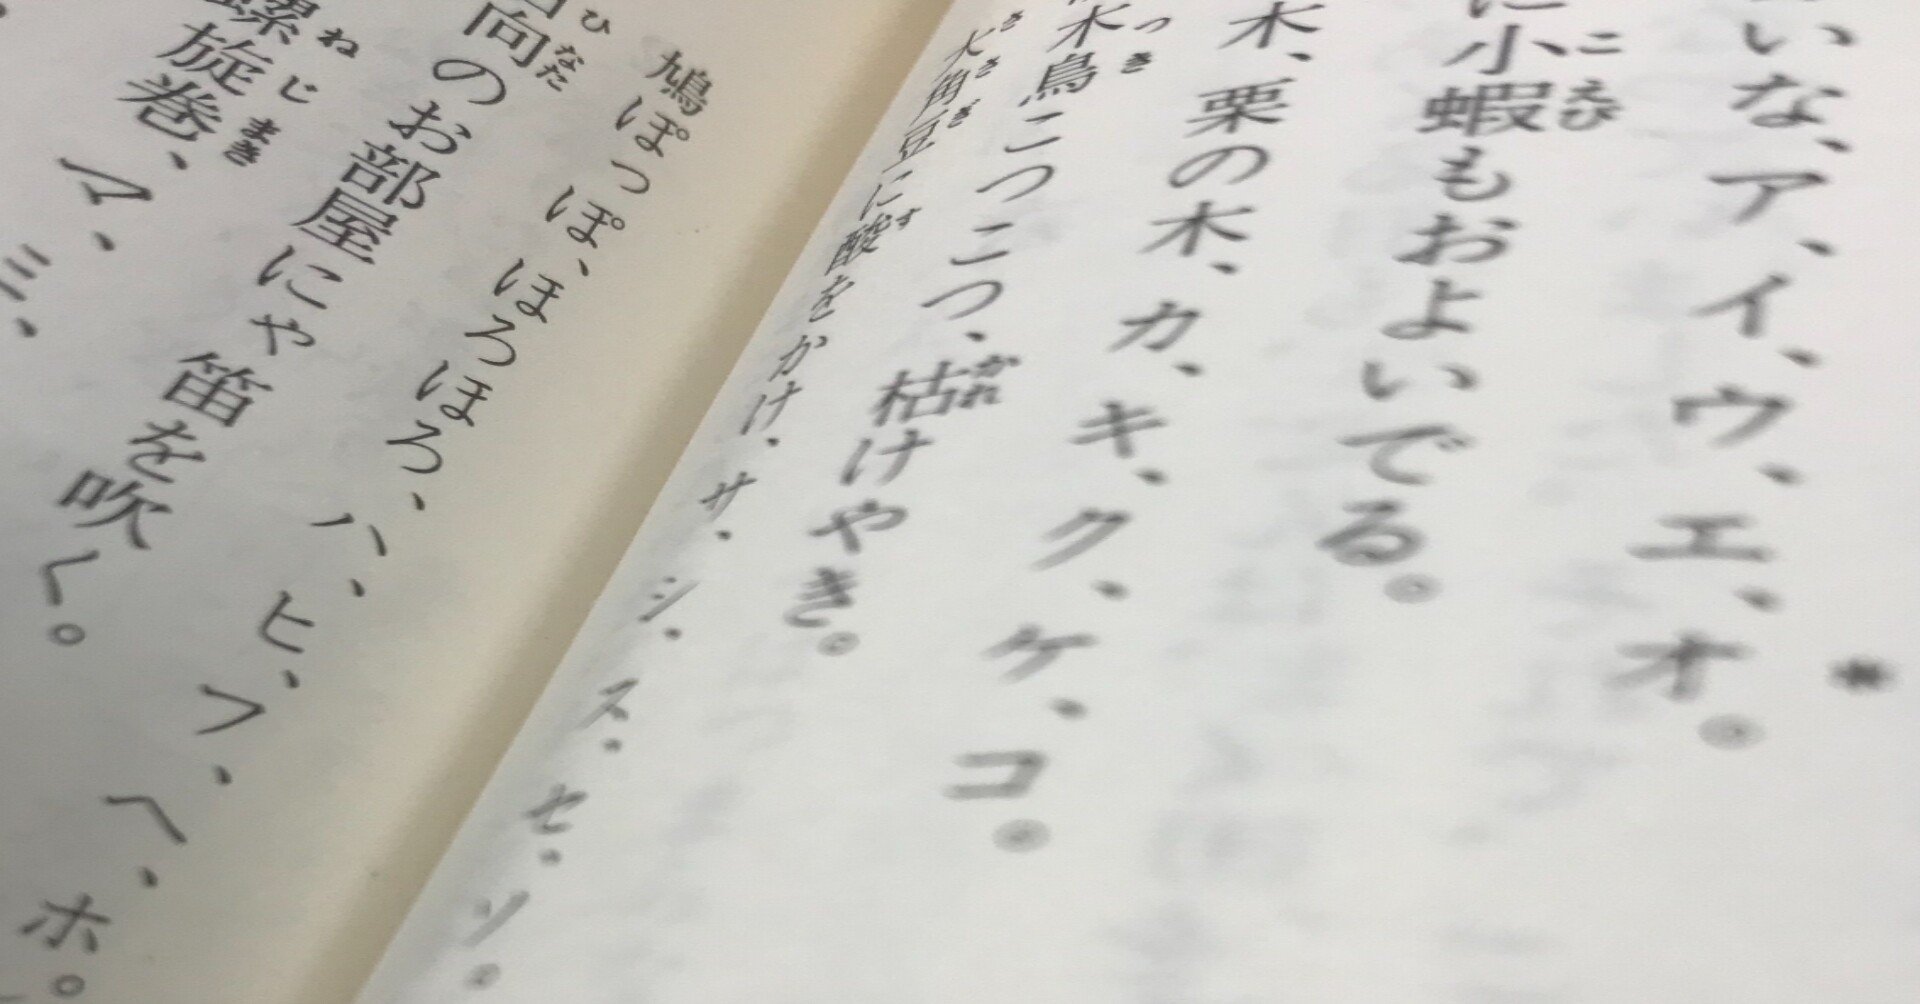 *
いな、ア、イ、ウ、エ、オ。
に小蝦もおよいでる。
木、栗の木、カ、キ、ク、ケ、コ。
木鳥こつこつ、枯けやき。
大角豆に酸をかけ、サ、シ、ス、セ、ソ。
鳩ぽっぽ、ほろほろ、ハ、ヒ、フ、ヘ、ホ。
日向のお部屋にゃ笛を吹く。
螺旋巻、マ、ミ、